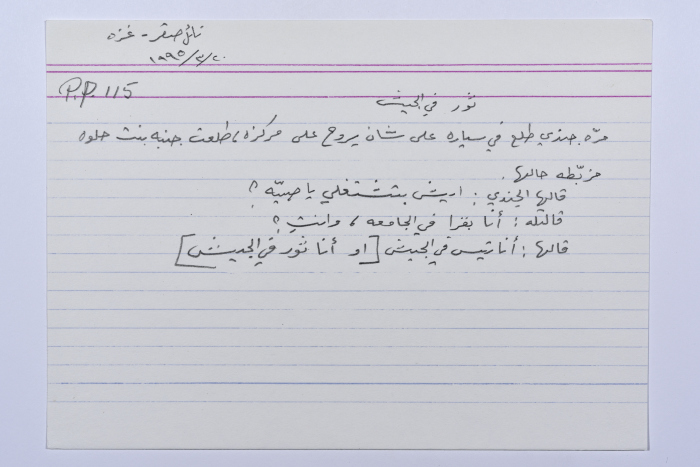 نائل صقر - غزه
١٩٩٥/٣/٢٠
P.P. 115
ثور في الجيش
مرّه جندي طلع في سياره على شان يروح على مركزه، طلعت جنبه بنت حلوه
مزبّطه حالها.
قالها الجندي: ايش بتشتغلي يا صبيّه؟
قالتله: أنا بقرا في الجامعه، وانتِ؟
قالها: أنا تيس في الجيش [او أنا ثور في الجيش]